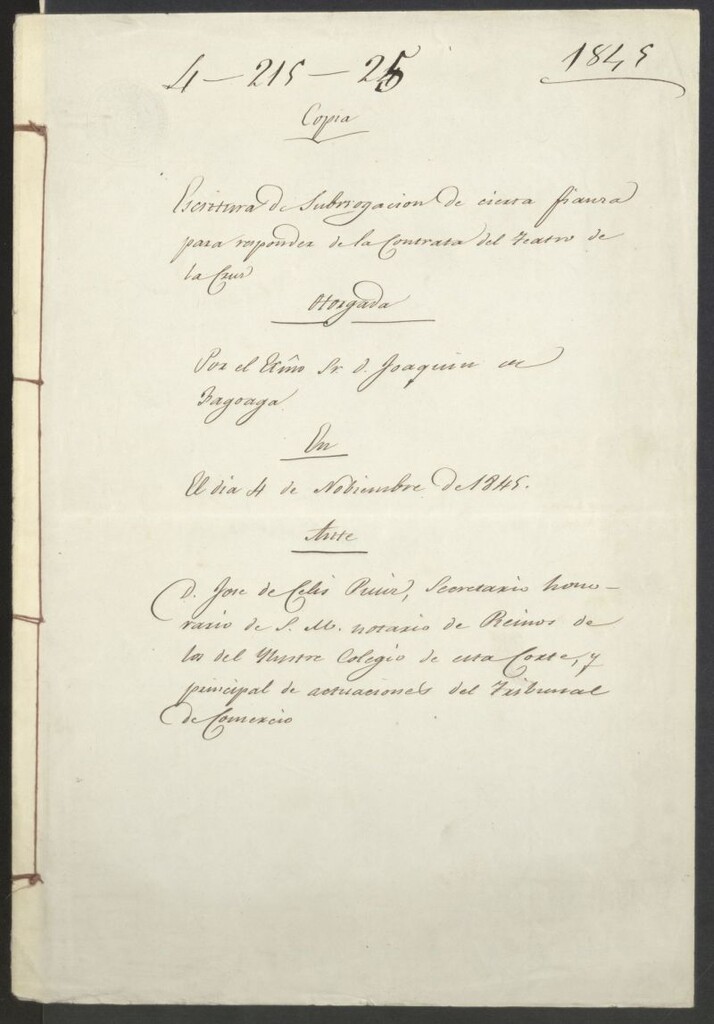 4-215-25
1845
Copia
Escritura de Subrrogacion de cierta fianza
para responder de la Contrata del Teatro de
la Cruz
Otorgada
Por el Exmo Sr. D. Joaquin de
Fagoaga
En
El dia 4 de Nobiembre de 1845.
Ante
D. Jose de Celis Ruiz, Secretario hono-
rario de S. M. notario de Reinos de
los del Ylustre Colegio de esta Corte, y
principal de actuaciones del Tribunal
de Comercio